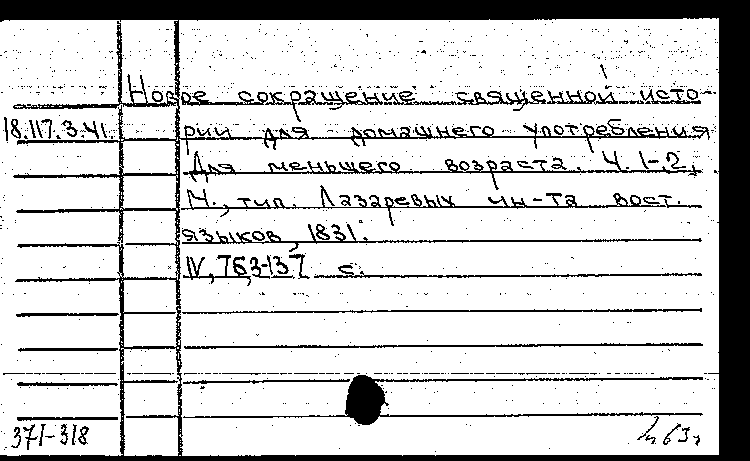 Новое сокращение священной исто-
18.117.3.41. рии для домашнего употребления
Для меньшего возраста. Ч. 1-2,
М., тип. Лазаревых ин-та вост.
языков, 1831.
IV, 76,3-137 с.
371-318